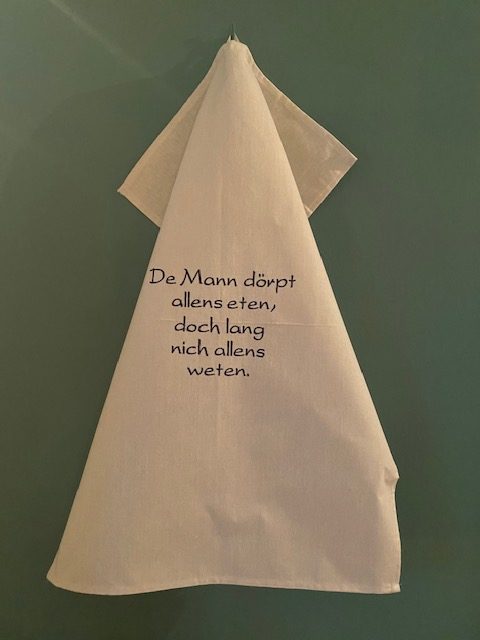 De Mann dörpt
allens eten,
doch lang
nich allens
weten.